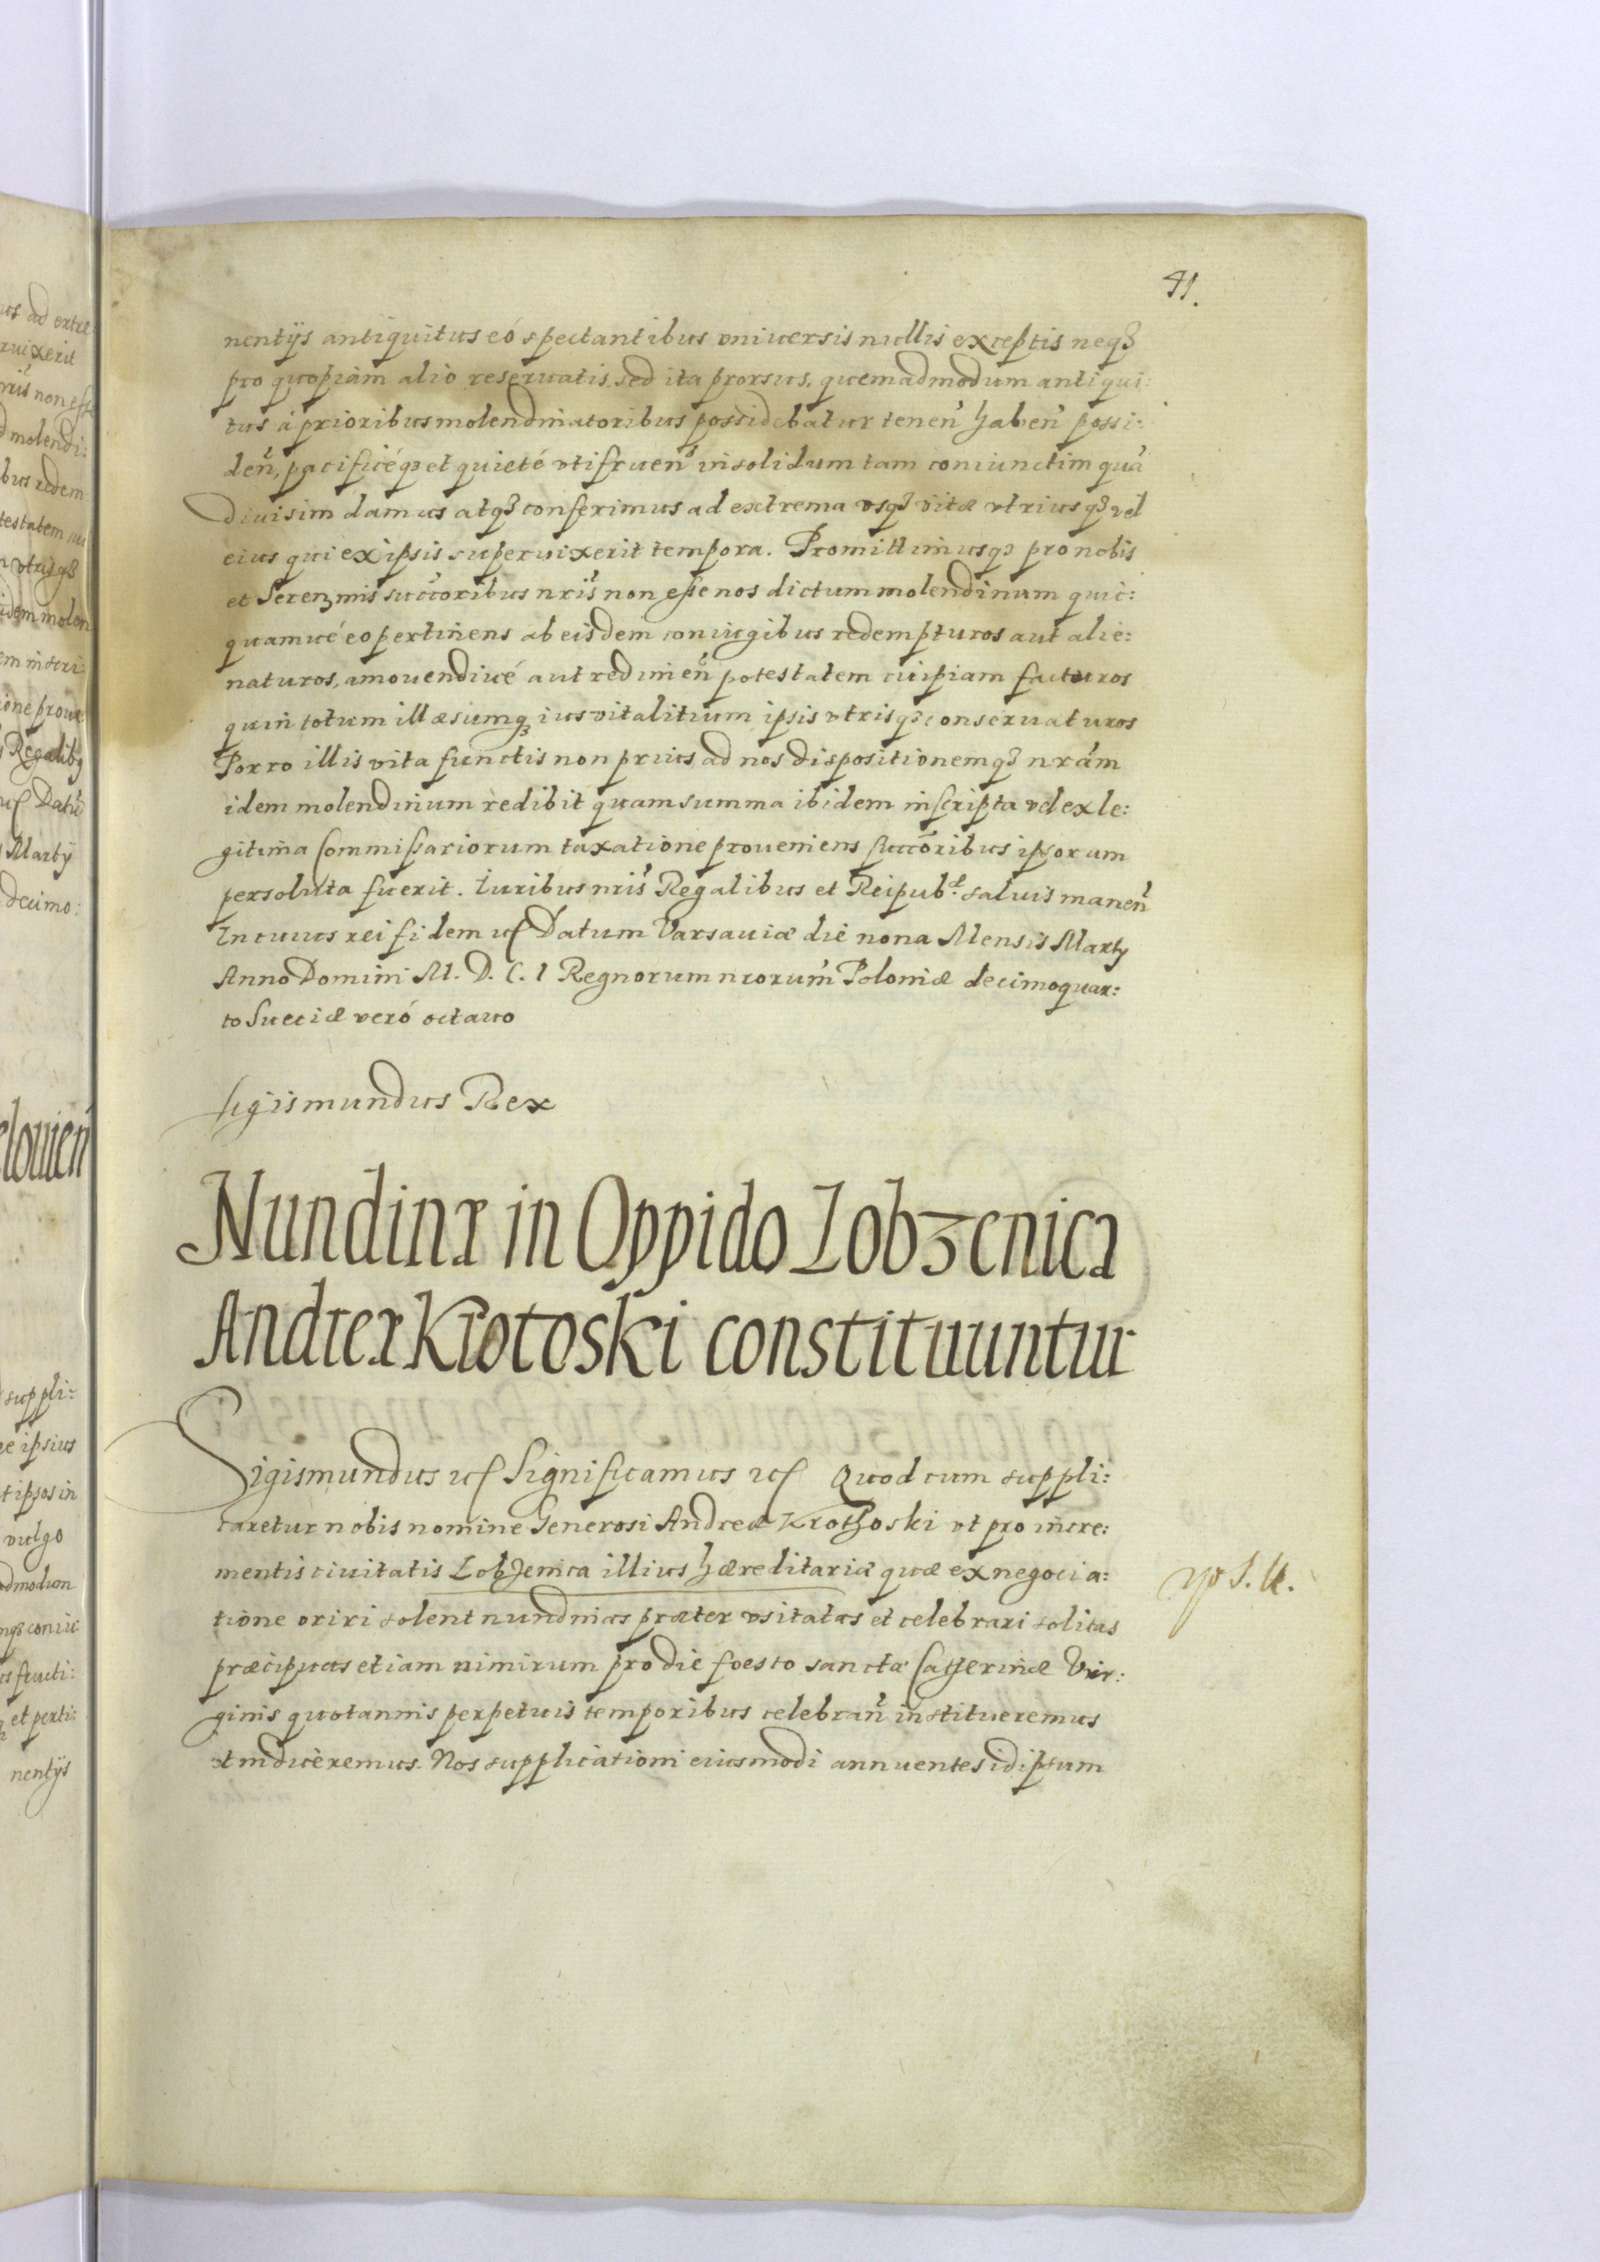 41.
nentijs antiquitus eó spectantibus vniuersis nullis exceptis neq3
pro quopiam alio reseruatis, sed ita prorsus, quemadmodum antiqui:
tus á prioribus molendinatoribus possidebatur tenen̄ haben̄ possi:
den̄, pacificéq3 et quieté vtifruen̄ in solidum tam coniunctim quā
diuisim damus atq3 conferimus ad extrema vsq3 vitæ vtriusq3 vel
eius qui ex ipsis superuixerit tempora. Promittimusq3 pro nobis
et Seren3mis succoribus nris non esse nos dictum molendinum quic:
quamué eo pertinens ab eisdem coniugibus redempturos aut alie:
naturos, amouendiué aut redimen̄ potestatem cuipiam facturos
quin totum illæsumq3 ius vitalitium ipsis vtrisq3 conseruaturos
Porro illis vita functis non prius ad nos dispositionemq3 nrám
idem molendinum redibit quam summa ibidem inscripta vel ex le:
gitima Commissariorum taxatione proueniens succoribus ipsorum
persoluta fuerit. Iuribus nris Regalibus et Reipub. saluis manen̄
In cuius rei fidem uc Datum Varsauiæ die nona Mensis Martij
Anno Domini M. D. C. I Regnorum nrorum Poloniæ decimoquar:
to Sueciæ veró octauo
Sigismundus Rex
Nundinæ in Oppido Lobzenica
Andreæ Krotoski constituuntur
Sigismundus uc Significamus uc Quod cum suppli:
caretur nobis nomine Generosi Andreæ Krothoski vt pro incre:
mentis ciuitatis Lobzenica illius hæreditariæ quæ ex negocia:
tione oriri solent nundinas præter vsitatas et celebrari solitas
præcipuas etiam nimirum pro die foesto sanctæ Catherinæ Vir:
ginis quotannis perpetuis temporibus celebran̄ institueremus
et indiceremus. Nos supplicationi eiusmodi annuentes id ipsum